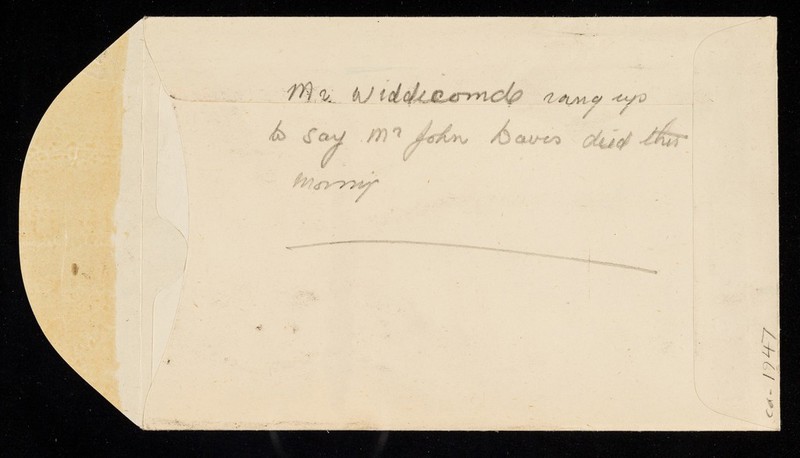 Mr. Widdecombe rang up
to say Mr John Davis died this
morning
ca. 1947